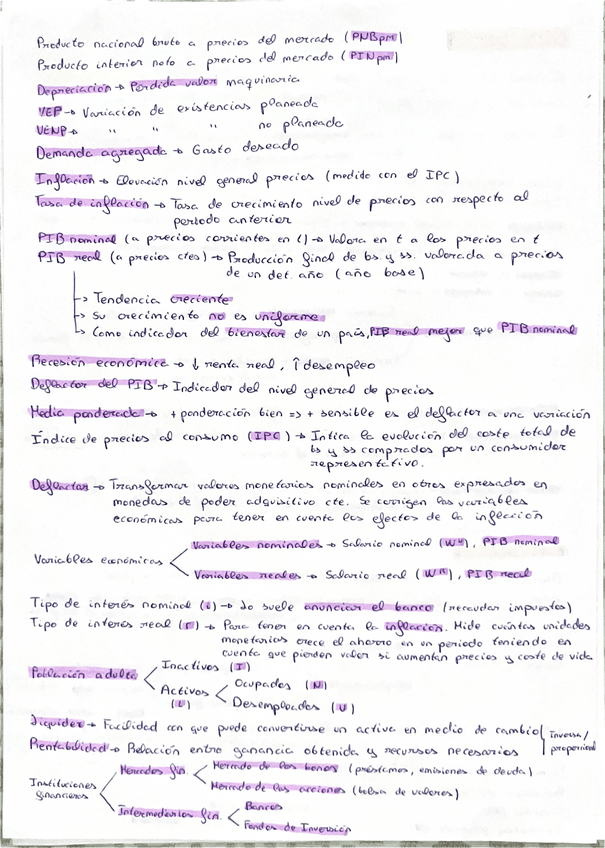 Producto nacional bruto a precios del mercado (PNBpm)
Producto interior neto a precios del mercado (PINpm)
Depreciación → Pérdida valor maquinaria
VEP → Variación de existencias planeada
VENP → " " " no planeada
Demanda agregada → Gasto deseado
Inflación → Elevación nivel general precios (medido con el IPC)
Tasa de inflación → Tasa de crecimiento nivel de precios con respecto al
periodo anterior
PIB nominal (a precios corrientes en t) → Valora en t a los precios en t
PIB real (a precios ctes) → Producción final de bs. y ss. valorada a precios
de un det. año (año base)
→ Tendencia creciente
→ Su crecimiento no es uniforme
→ Como indicador del bienestar de un país, PIB real mejor que PIB nominal
Recesión económica → ↓ renta real, ↑ desempleo
Deflactor del PIB → Indicador del nivel general de precios
Media ponderada → + ponderación bien => + sensible es el deflactor a una variación
Índice de precios al consumo (IPC) → Intica la evolución del coste total de
bs y ss comprados por un consumidor
representativo.
Deflactar → Transformar valores monetarios nominales en otros expresados en
monedas de poder adquisitivo cte. Se corrigen las variables
económicas para tener en cuenta los efectos de la inflación
Variables económicas
Variables nominales → Salario nominal (Wᴺ), PIB nominal
Variables reales → Salario real (Wᴿ), PIB real
Tipo de interés nominal (i) → Lo suele anunciar el banco (recaudar impuestos)
Tipo de interés real (r) → Para tener en cuenta la inflación. Mide cuántas unidades
monetarias crece el ahorro en un periodo teniendo en
cuenta que pierden valor si aumentan precios y coste de vida
Población adulta
Inactivos (I)
Activos (L)
Ocupados (N)
Desempleados (U)
Liquidez → Facilidad con que puede convertirse un activo en medio de cambio
Rentabilidad → Relación entre ganancia obtenida y recursos necesarios
Inversa/
proporcional
Instituciones
financieras
Mercados fin.
Mercado de los bonos (préstamos, emisiones de deuda)
Mercado de las acciones (bolsa de valores)
Intermediarios fin.
Bancos
Fondos de Inversión